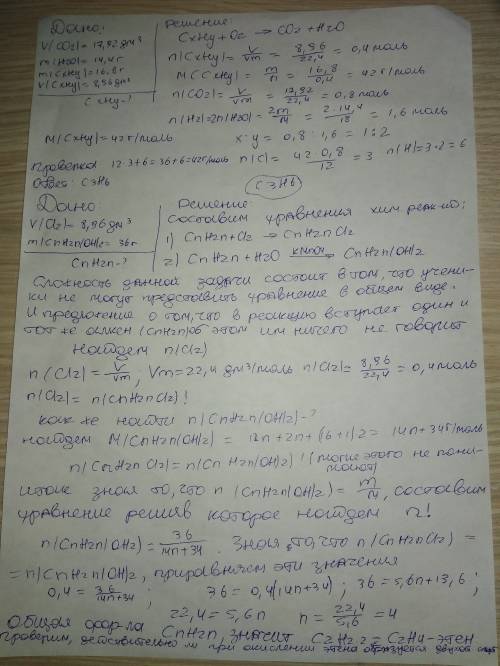 Дано:
V(CO2)= 17,92 дм3
m(H2O)= 14,4г
m(CxHy)=16,8г
V(CxHy)=8,96дм3
CxHy-?
Решение
CxHy+O2 → CO2+H2O
n(CxHy)= V/Vm = 8,96/22,4 = 0,4 моль
M(CxHy)= m/n = 16,8/0,4 = 42г/моль
n(CO2)= V/Vm = 17,92/22,4 = 0,8 моль
n(H)=2n(H2O)= 2m/M = 2·14,4/18 = 1,6 моль
M(CxHy)=42г/моль x:y = 0,8:1,6 = 1:2
Проверка 12·3+6=36+6=42г/моль n(C)= 42·0,8/12 = 3 n(H)=3·2=6
Ответ: C3H6 C3H6
Дано:
V(Cl2)= 8,96 дм3
m(CnH2n(OH)2)= 36г
CnH2n-?
Решение
Составим уравнения хим. реак-ий:
1) CnH2n+Cl2 → CnH2nCl2
2) CnH2n+H2O KMnO4→ CnH2n(OH)2
Сложность данной задачи состоит в том, что учени-
ки не могут представить уравнение в общем виде.
И предложение о том, что в реакцию вступает один и
тот же алкен (CnH2n) об этом им ничего не говорит
Найдем n(Cl2)
n(Cl2)= V/Vm, Vm=22,4 дм3/моль n(Cl2)= 8,96/22,4 = 0,4моль
n(Cl2)= n(CnH2nCl2)!
Как же найти n(CnH2n(OH)2)-?
найдем M(CnH2n(OH)2) = 12n+2n+(16+1)·2= 14n+34г/моль
n(CnH2nCl2)=n(CnH2n(OH)2)! (многие этого не пони-
мают)
итак зная то, что n(CnH2n(OH)2)= m/M, составим
уравнение решив которое найдем n!
n(CnH2n(OH)2)= 36/14n+34. Зная то, что n(CnH2nCl2)=
=n(CnH2n(OH)2, приравняем эти значения
0,4= 36/14n+34; 36= 0,4(14n+34); 36=5,6n+13,6;
22,4=5,6n n= 22,4/5,6 =4
Общая фор-ла CnH2n, значит C2H2·2=C2H4-этен
Проверим, действительно ли при окислении этена образуется двухат